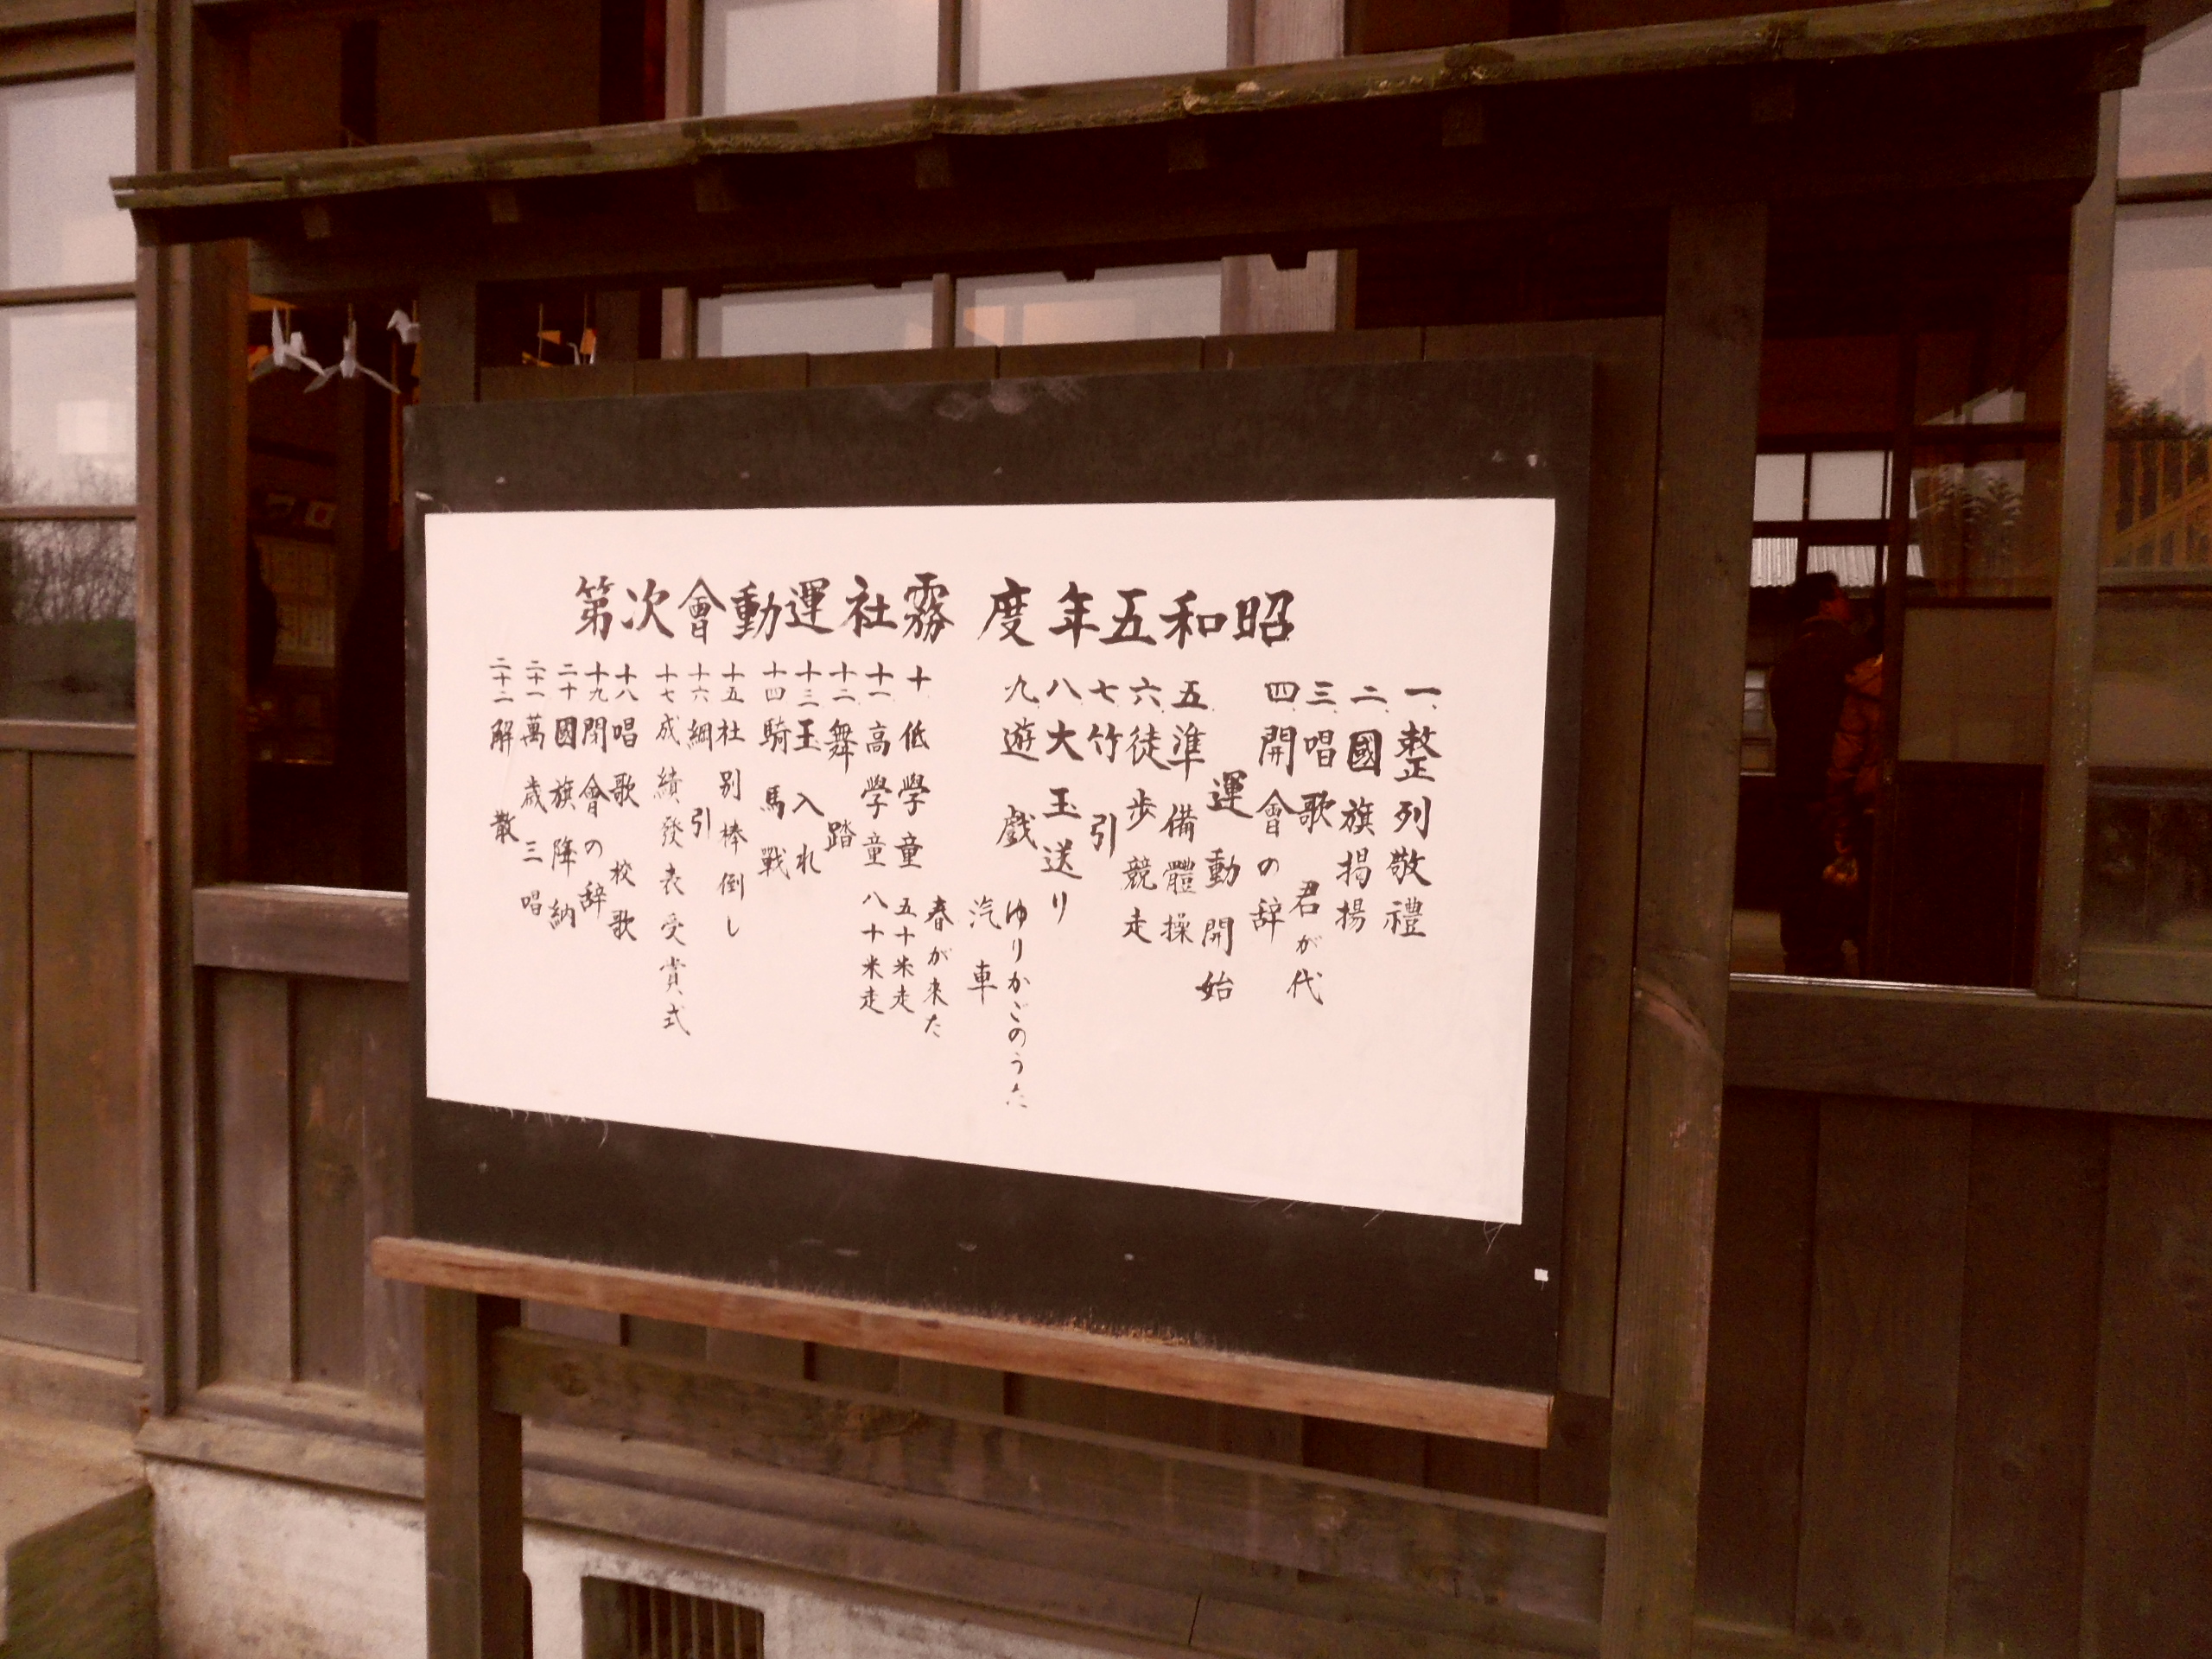 昭和五年度 霧社運動會次第
一、整列敬禮
二、國旗揭揚
三、唱歌 君が代
四、開會の辞
運動開始
五、準備體操
六、徒歩競走
七、竹引
八、大玉送り
九、遊戲 ゆりかごのうた
汽車
春が来た
十 低學童 五十米走
十一 高學童 八十米走
十二 舞踏
十三 玉入れ
十四 騎馬戰
十五 社別棒倒し
十六 綱引
十七 成績發表受賞式
十八 唱歌 校歌
十九 閉會の辞
二十 國旗降納
二十一 萬歳三唱
二十二 解散